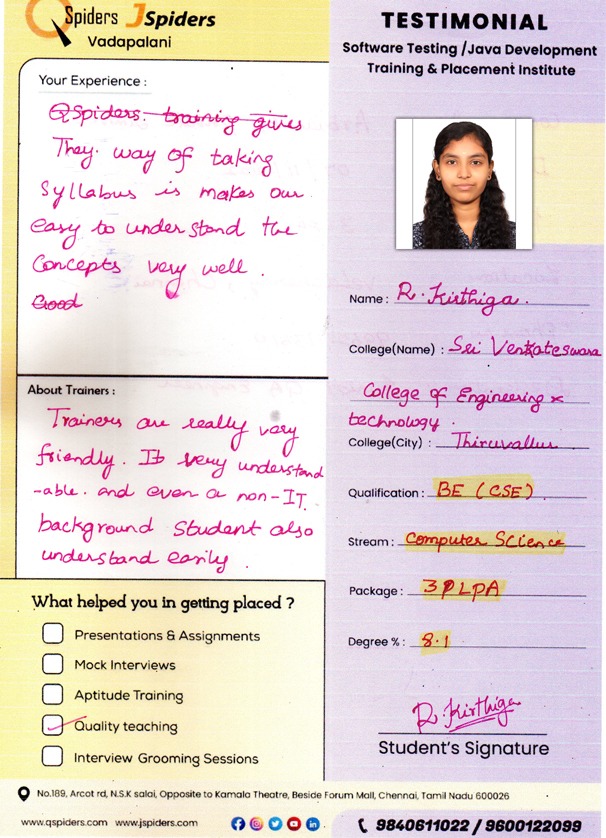 QSpiders JSpiders
Vadapalani
Your Experience :
QSpiders training gives
They. way of taking
Syllabus is makes our
easy to understand the
Concepts very well .
Good
About Trainers :
Trainers are really very
friendly. It very understand
-able. and even a non-IT
background Student also
understand easily .
What helped you in getting placed ?
Presentations & Assignments
Mock Interviews
Aptitude Training
Quality teaching
Interview Grooming Sessions
TESTIMONIAL
Software Testing /Java Development
Training & Placement Institute
Name : R. Kirthiga.
College(Name) : Sri Venkateswara
College of Engineering &
technology .
College(City) : Thiruvallur
Qualification : BE (CSE)
Stream : Computer Science
Package : 3 PLPA
Degree % : 8.1
R. Kirthiga
Student's Signature
No.189, Arcot rd, N.S.K salai, Opposite to Kamala Theatre, Beside Forum Mall, Chennai, Tamil Nadu 600026
www.qspiders.com www.jspiders.com
9840611022 / 9600122099